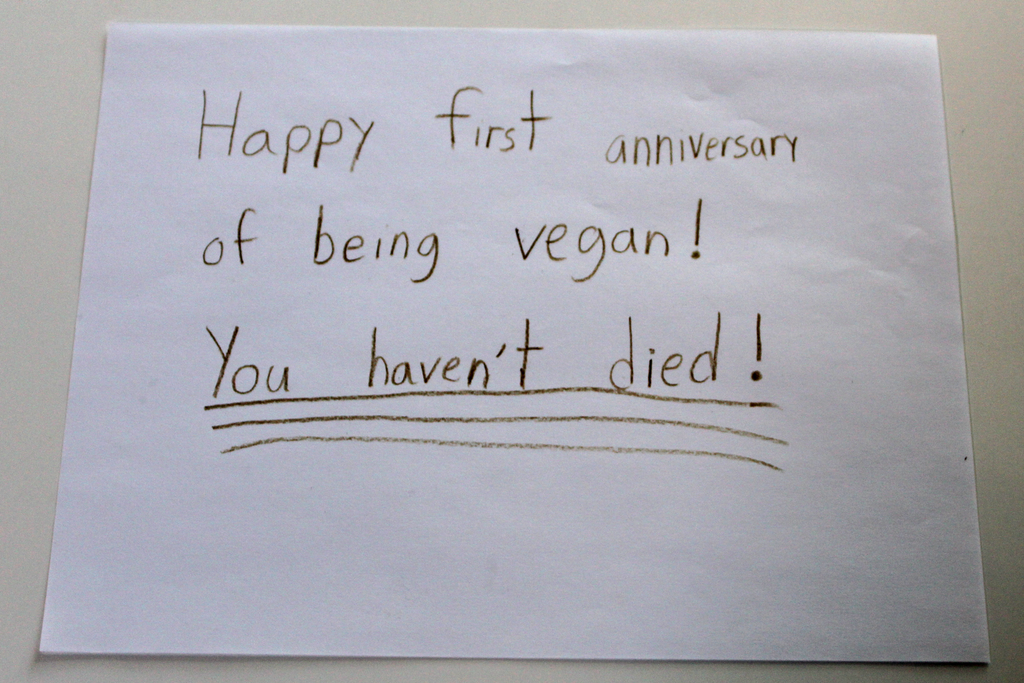 Happy first anniversary
of being vegan!
You haven't died!